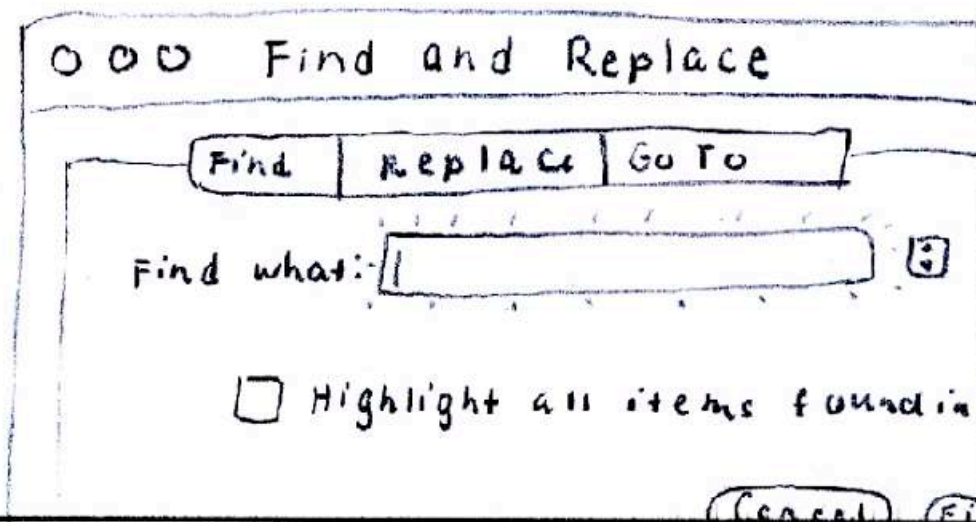 Find and Replace
Find Replace Go To
Find what:
Highlight all items found in
Cancel Fi